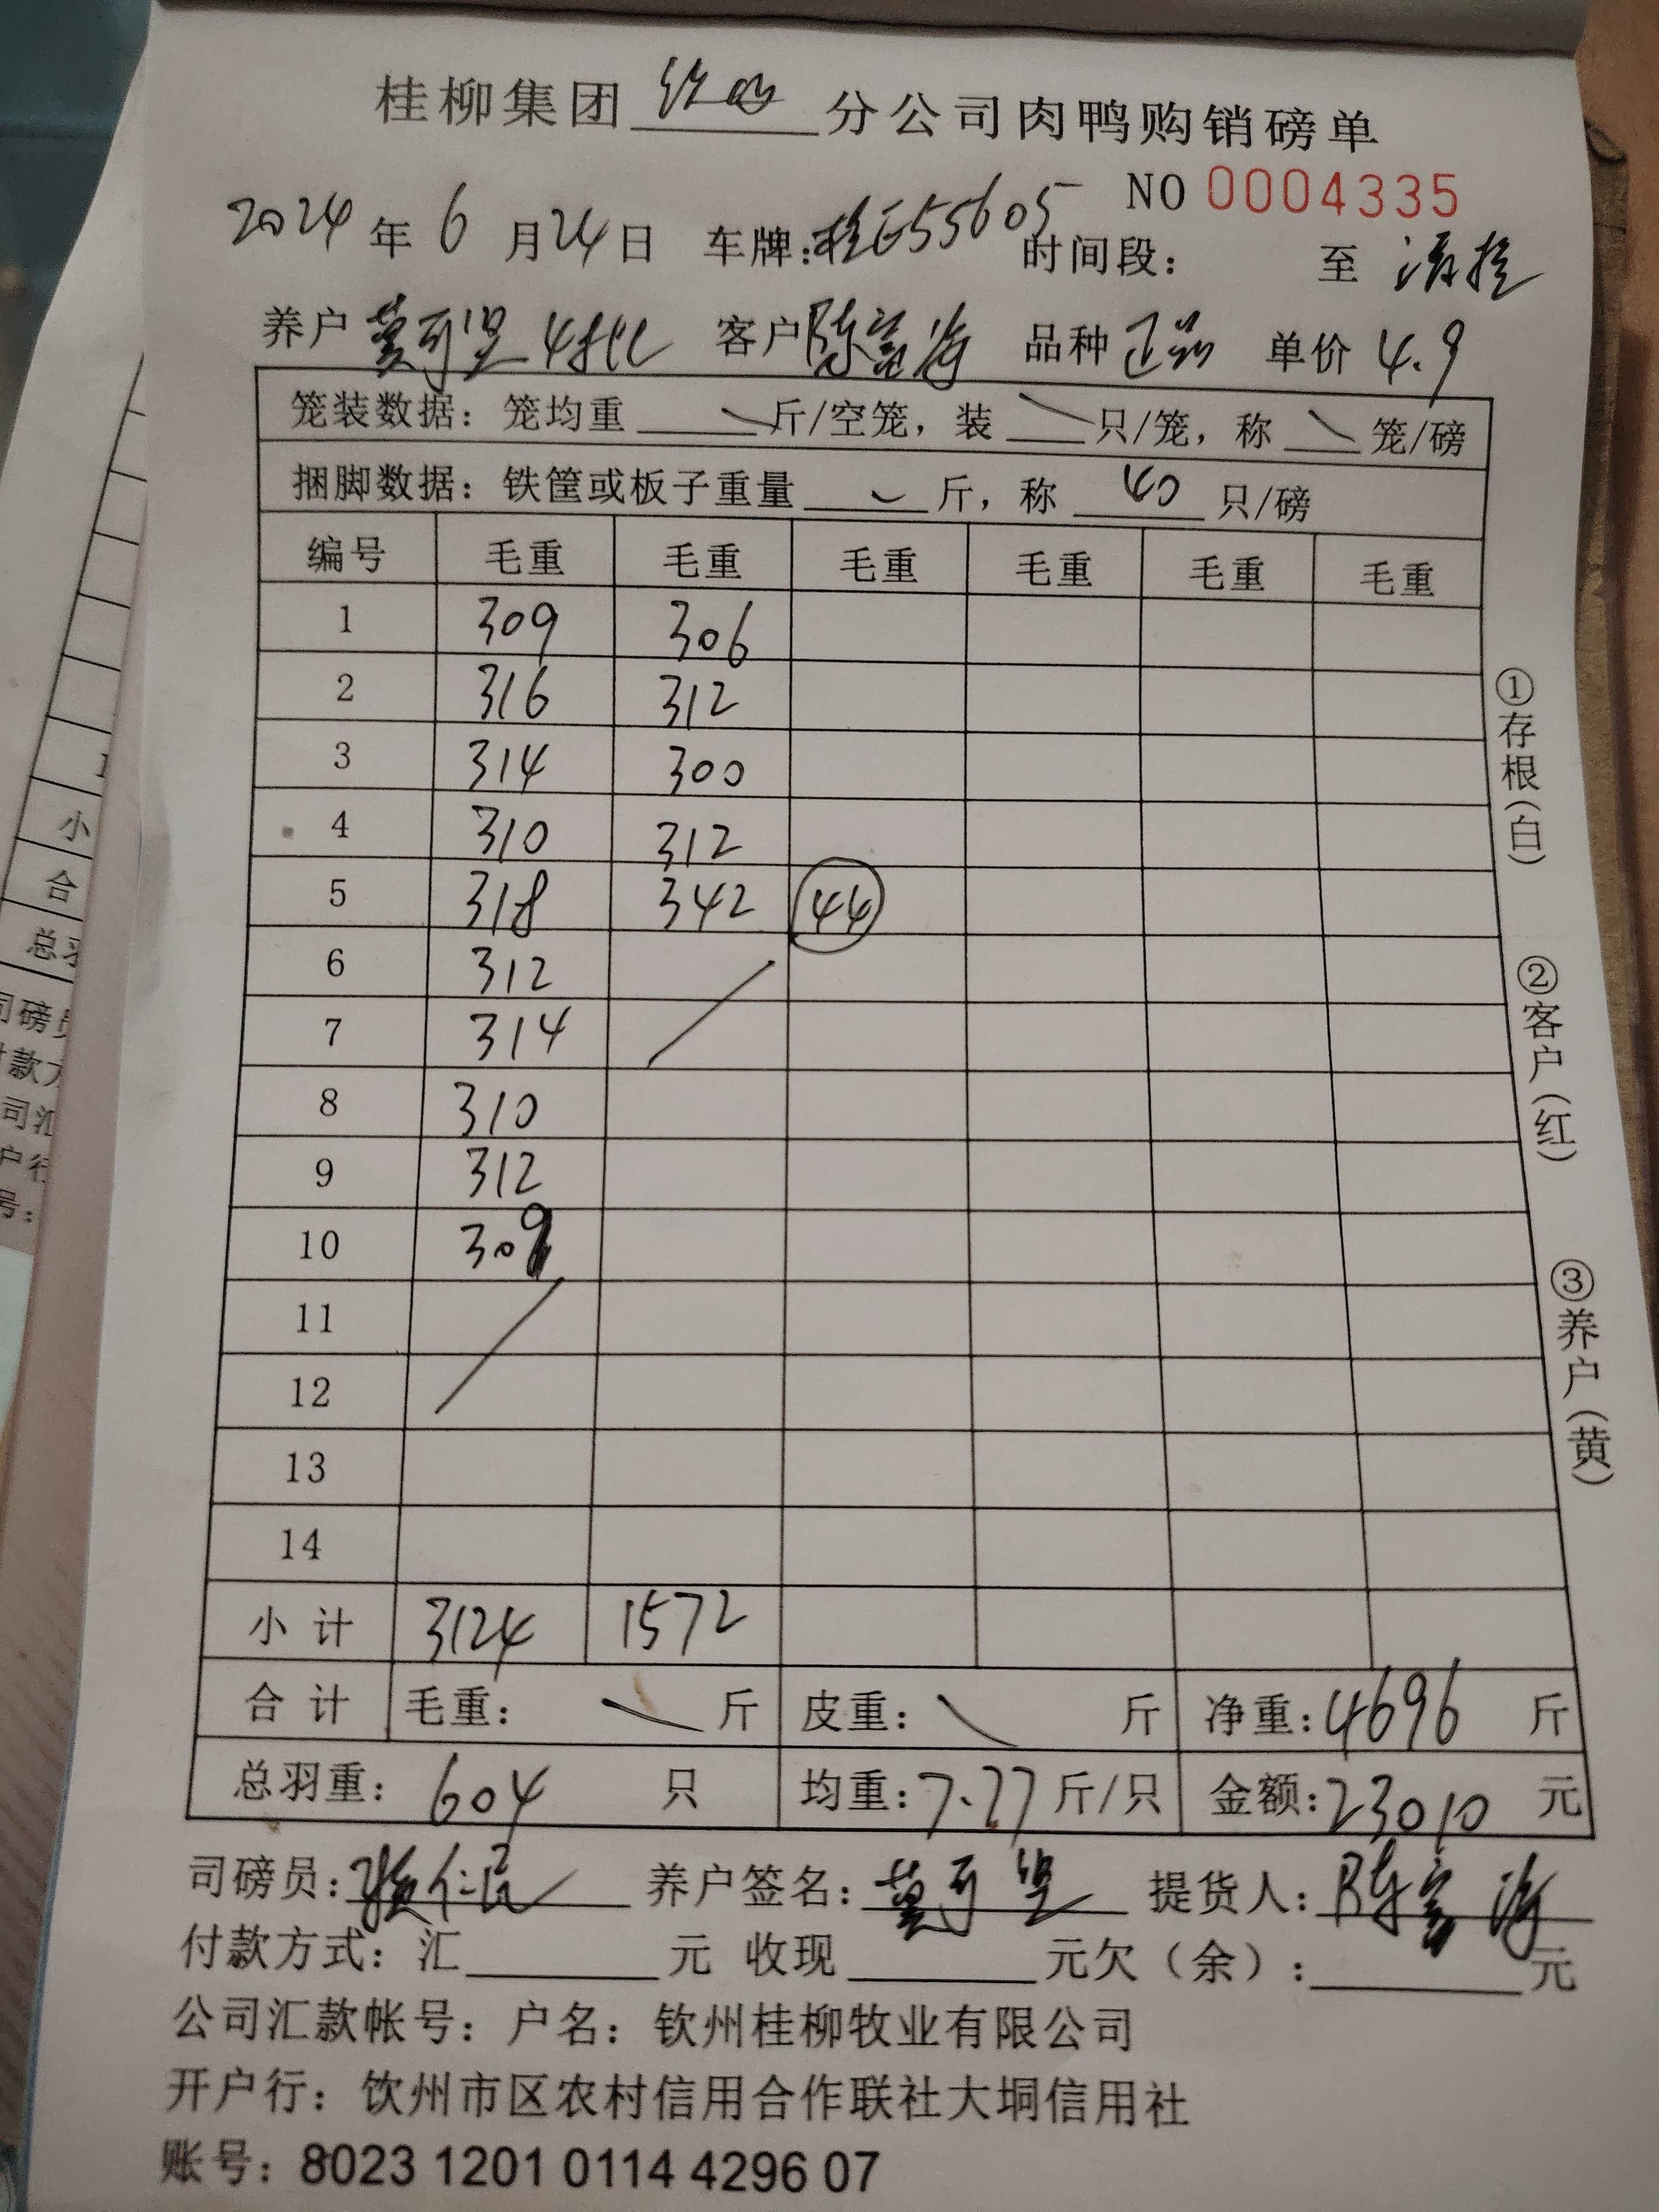 桂柳集团 钦州 分公司肉鸭购销磅单
NO 0004335
2024 年 6 月 24 日 车牌:桂E55605 时间段: 至 清栏
养户 莫可坚 4批 客户 陈富海 品种 正品 单价 4.9
笼装数据: 笼均重 斤/空笼, 装 只/笼, 称 笼/磅
捆脚数据: 铁筐或板子重量 斤, 称 40 只/磅
编号 毛重 毛重 毛重 毛重 毛重 毛重
1 309 306
2 316 312
3 314 300
4 310 312
5 318 342 44
6 312
7 314
8 310
9 312
10 309
11
12
13
14
小计 3124 1572
合计 毛重: 斤 皮重: 斤 净重: 4696 斤
总羽重: 604 只 均重: 7.77 斤/只 金额: 23010 元
司磅员: 养户签名: 莫可坚 提货人: 陈富海
付款方式: 汇 元 收现 元欠(余): 元
公司汇款帐号: 户名: 钦州桂柳牧业有限公司
开户行: 钦州市区农村信用合作联社大垌信用社
账号: 8023 1201 0114 4296 07
①存根(白)
②客户(红)
③养户(黄)
小
合